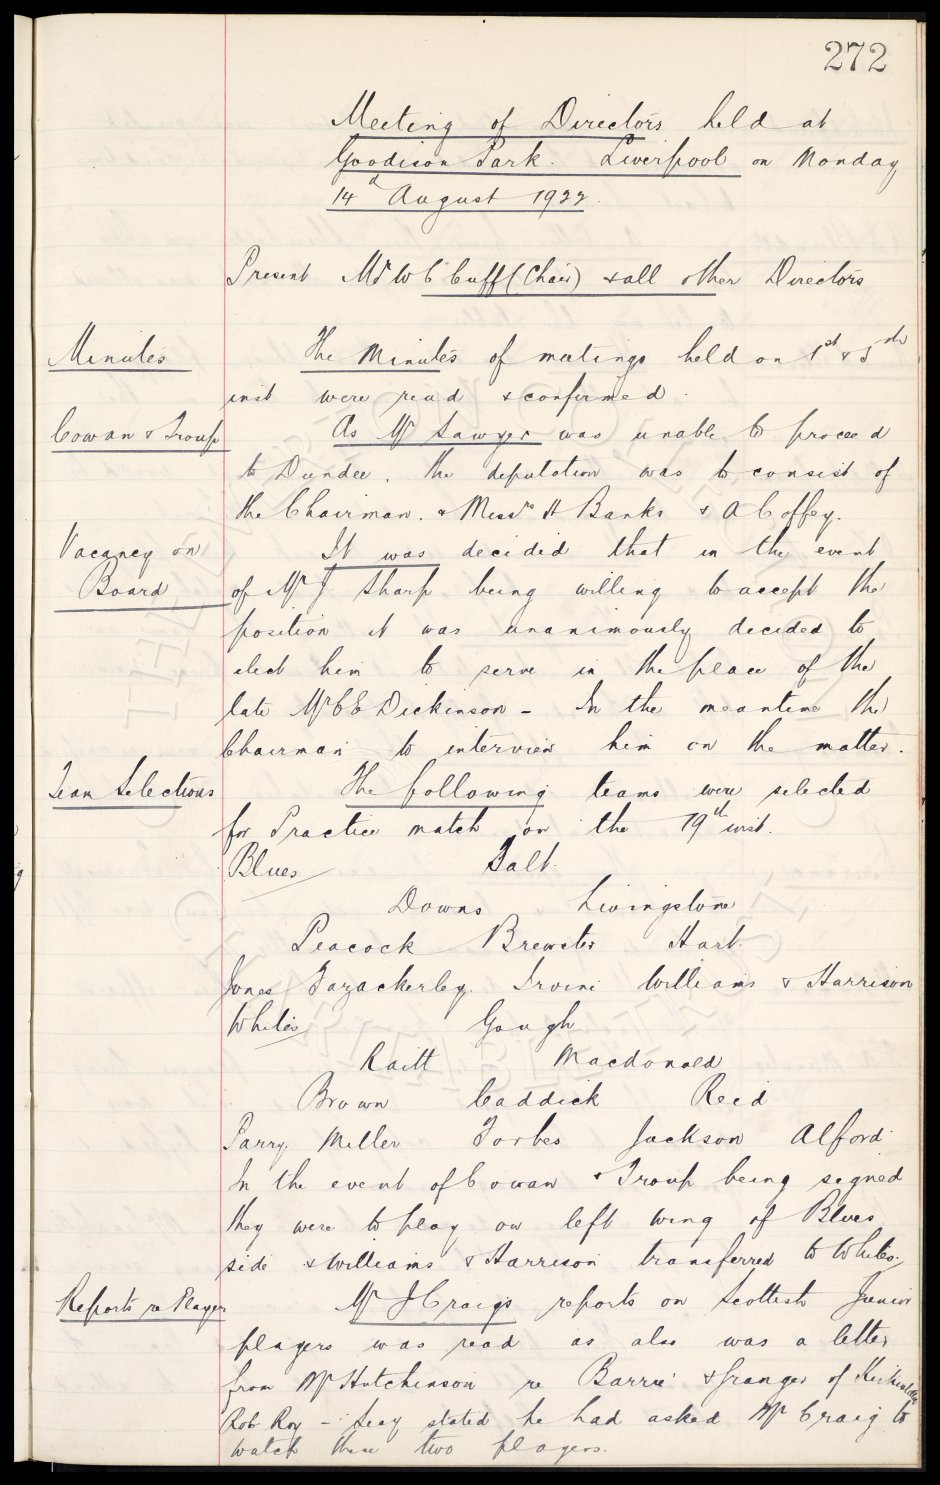 272
Meeting of Directors held at
Goodison Park. Liverpool on Monday
14th August 1922.
Present Mr W C Cuff (Chair) & all other Directors
Minutes The Minutes of meetings held on 1st & 5th
inst were read & confirmed.
Cowan & Troup As Mr Sawyer was unable to proceed
to Dundee, the deputation was to consist of
the Chairman, & Messrs H Banks & A Coffey.
Vacancy on It was decided that in the event
Board of Mr J Sharp being willing to accept the
position it was unanimously decided to
elect him to serve in the place of the
late Mr C E Dickinson - In the meantime the
Chairman to interview him on the matter.
Team Selections The following teams were selected
for Practice match on the 19th inst.
Blues Salt.
Downs Livingstone
Peacock Brewster Hart.
Jones Fazackerley. Irvine Williams & Harrison
Whites Gough
Raitt Macdonald
Brown Caddick Reid
Parry. Miller Forbes Jackson Alford
In the event of Cowan & Troup being signed
they were to play on left wing of Blues
side & Williams & Harrison transferred to Whites.
Reports re Players Mr J Craigs reports on Scottish Junior
players was read as also was a letter
from Mr Hutchinson re Barrie & of Kirkcaldy
Rob Roy - Secy stated he had asked Mr Craig to
watch these two players.